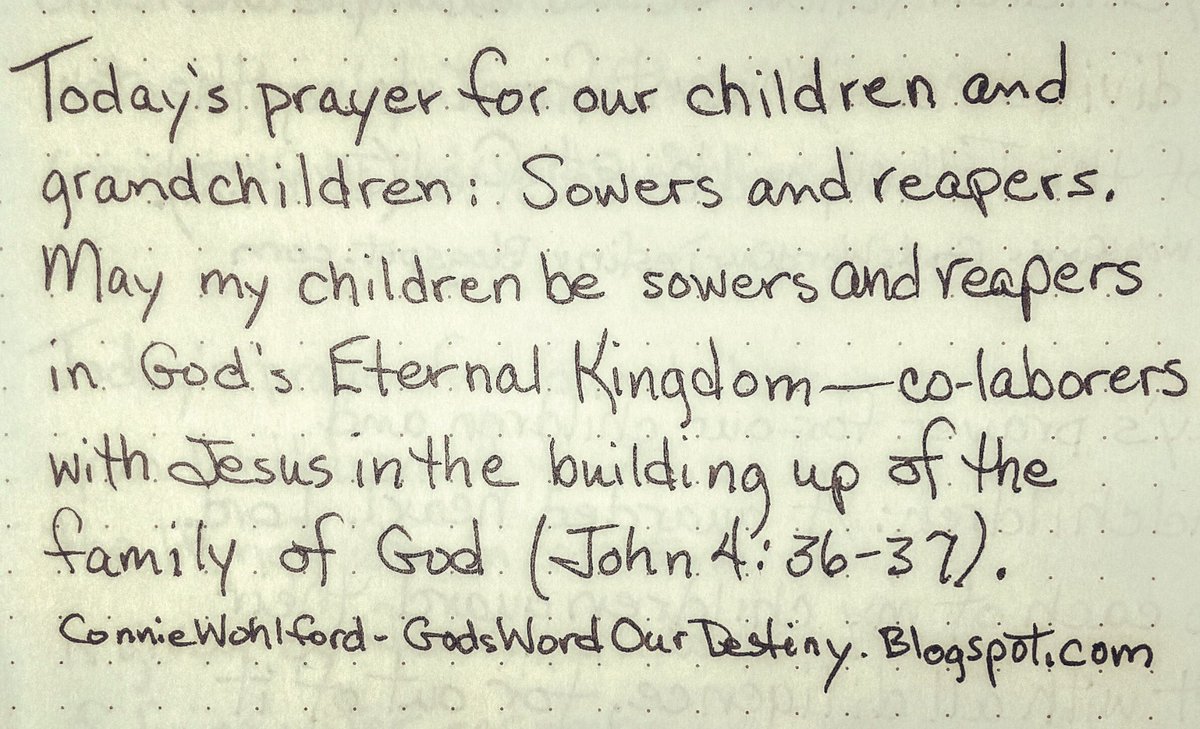 Today's prayer for our children and
grandchildren: Sowers and reapers.
May my children be sowers and reapers
in God's Eternal Kingdom—co-laborers
with Jesus in the building up of the
family of God (John 4:36-37).
Connie Wohlford - GodsWordOurDestiny.Blogspot.com